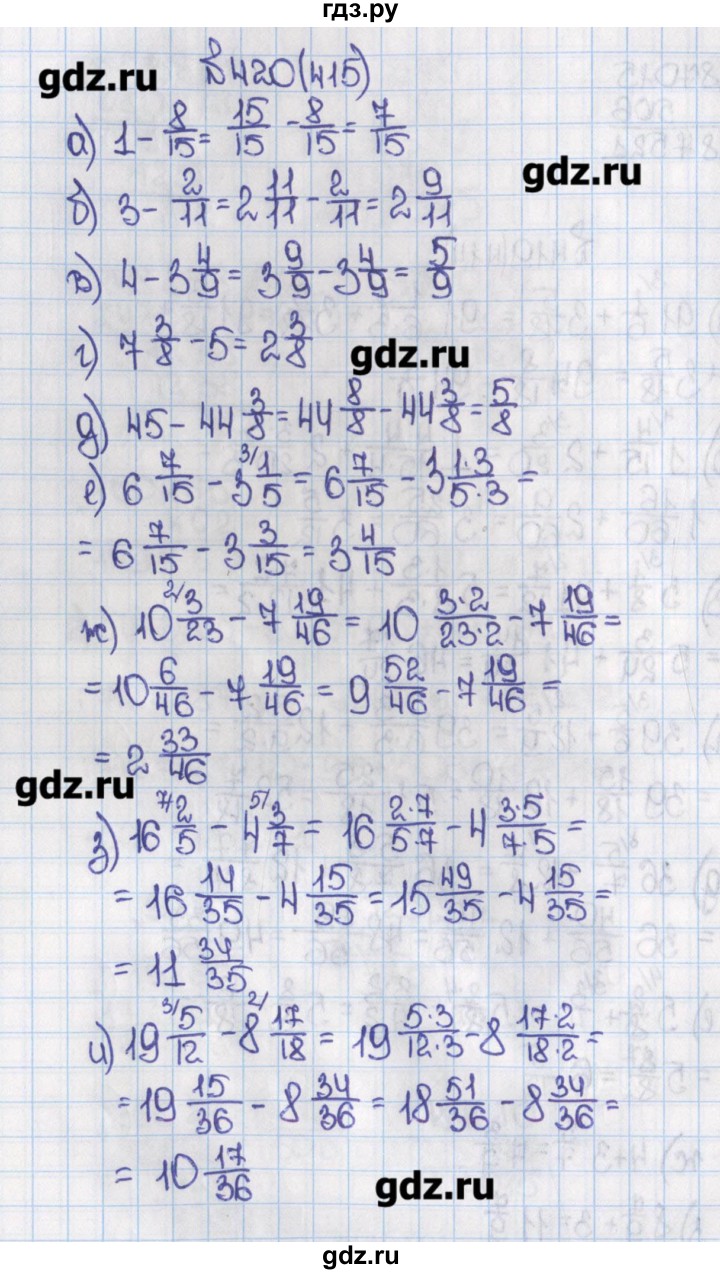 гдз.ру
№420(415)
gdz.ru
а) 1 - 8/15 = 15/15 - 8/15 = 7/15
gdz.ru
б) 3 - 2/11 = 2 11/11 - 2/11 = 2 9/11
в) 4 - 3 4/9 = 3 9/9 - 3 4/9 = 5/9
г) 7 3/8 - 5 = 2 3/8
gdz.ru
д) 45 - 44 3/8 = 44 8/8 - 44 3/8 = 5/8
е) 6 7/15 - 3 ³⁾1/5 = 6 7/15 - 3 1·3/5·3 =
= 6 7/15 - 3 3/15 = 3 4/15
ж) 10 ²⁾3/23 - 7 19/46 = 10 3·2/23·2 - 7 19/46 =
= 10 6/46 - 7 19/46 = 9 52/46 - 7 19/46 =
= 2 33/46
gdz.ru
з) 16 ⁷⁾2/5 - 4 ⁵⁾3/7 = 16 2·7/5·7 - 4 3·5/7·5 =
= 16 14/35 - 4 15/35 = 15 49/35 - 4 15/35 =
= 11 34/35
и) 19 ³⁾5/12 - 8 ²⁾17/18 = 19 5·3/12·3 - 8 17·2/18·2 =
= 19 15/36 - 8 34/36 = 18 51/36 - 8 34/36 =
= 10 17/36
gdz.ru
gdz.ru